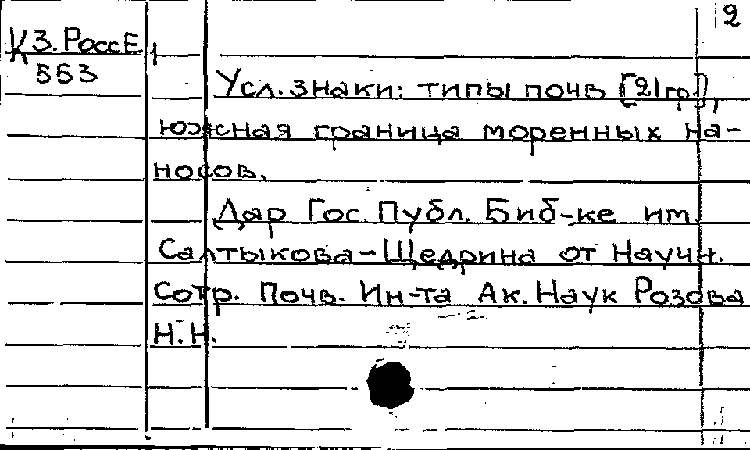 2
К3.РоссЕ
553
1
Усл. знаки: типы почв [21 гр.],
южная граница моренных на-
носов.
Дар Гос. Публ. Биб-ке им.
Салтыкова-Щедрина от Научн.
Сотр. Почв. Ин-та Ак. Наук Розова
Н.Н.